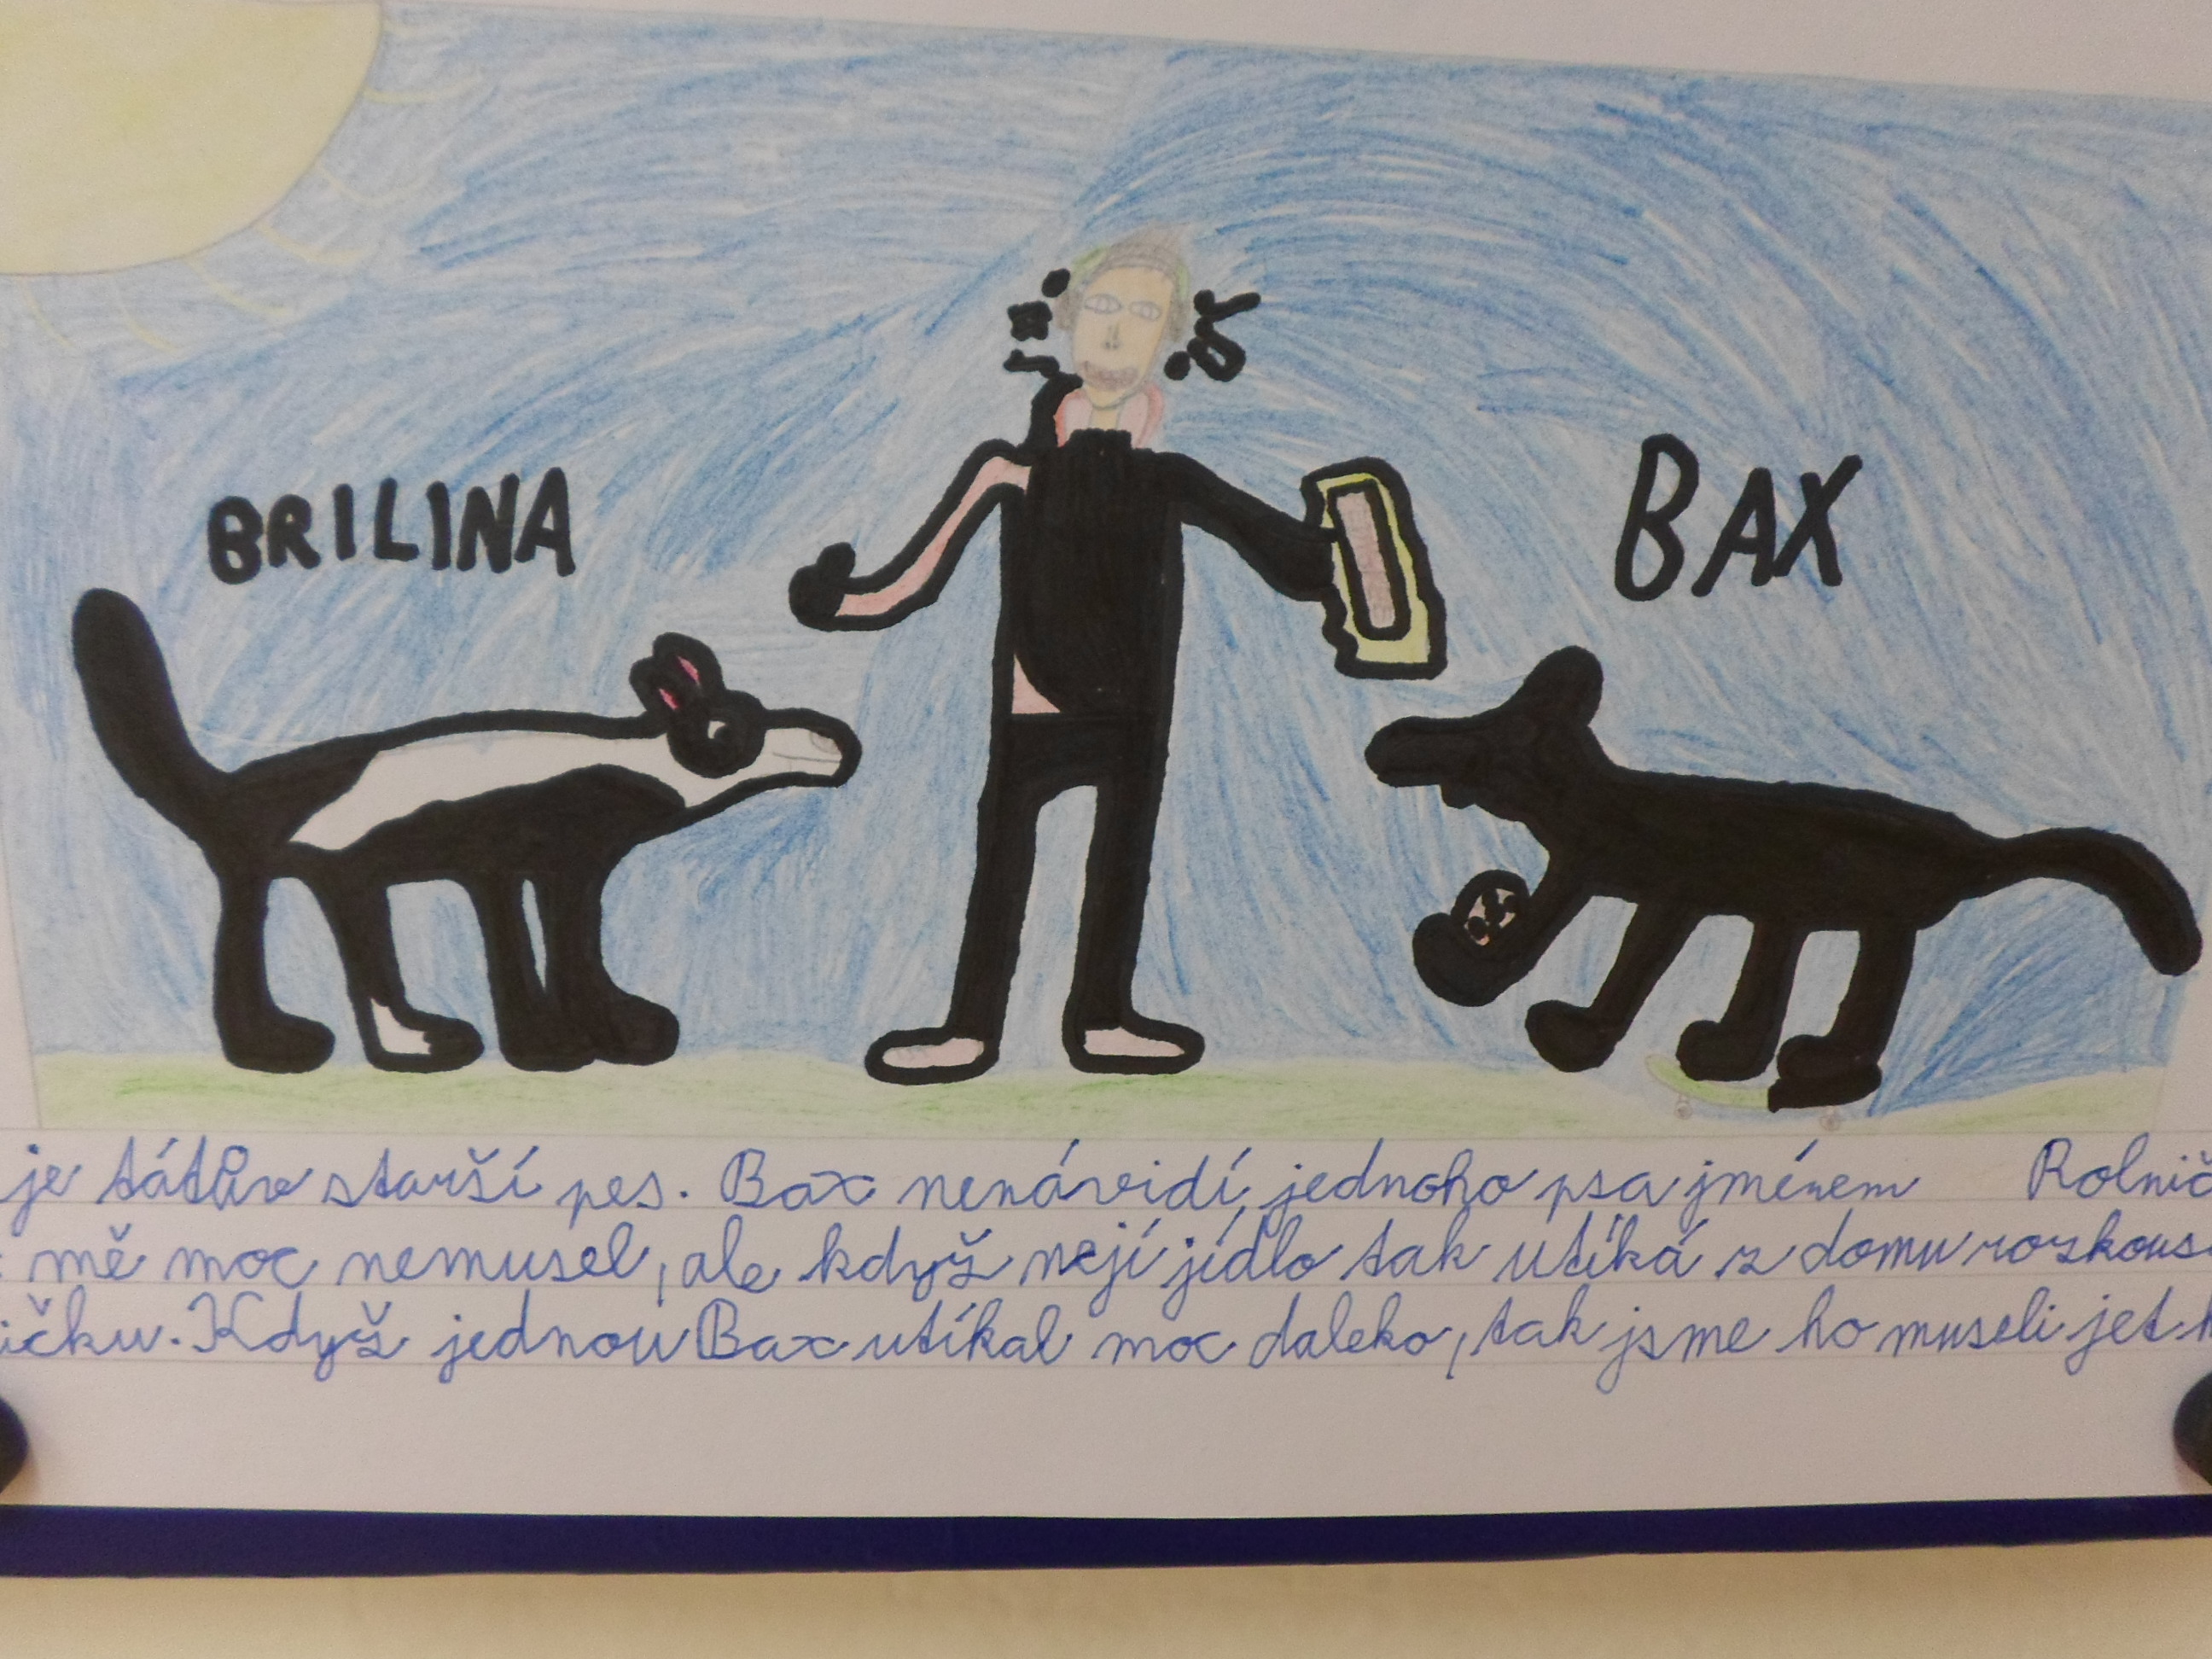 BRILINA
BAX
je tátův starší pes. Bax nenávidí jednoho psa jménem Rolnič
mě moc nemusel, ale když nejí jídlo tak utíká z domu rozkous
ičku. Když jednou Bax utíkal moc daleko, tak jsme ho museli jet h